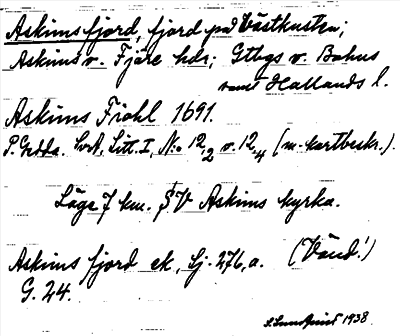 Askimsfjord, fjord på Västkusten;
Askims o. Fjäre hdr; Gtbgs o. Bohus
samt Hallands l.
Askims Fiohl 1691.
P. Gedda. SvA, Litt. I, No 12,2 o. 12,4 (m. kartbeskr.).
Läge 7 km. SV Askims kyrka.
Askims fjord ek, Sj. 276,a. (Vänd!)
G. 24.
S. Lundquist 1938.